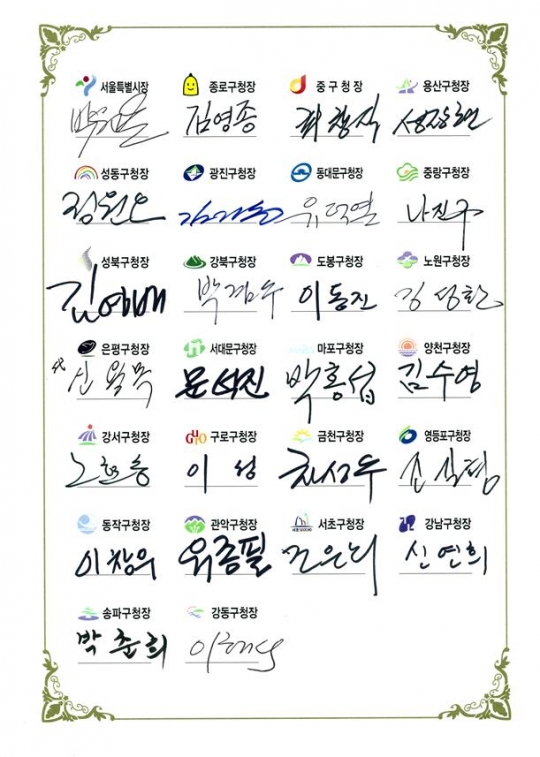 서울특별시장 종로구청장 중구청장 용산구청장
김영종 성장현
성동구청장 광진구청장 동대문구청장 중랑구청장
정원오 유덕열 나진구
성북구청장 강북구청장 도봉구청장 노원구청장
김영배 박겸수 이동진 김성환
은평구청장 서대문구청장 마포구청장 양천구청장
代 문석진 박홍섭 김수영
강서구청장 GURO 구로구청장 금천구청장 영등포구청장
노현송 이성 차성수
동작구청장 관악구청장 서초구청장 강남구청장
이창우 유종필 조은희 신연희
송파구청장 강동구청장
박춘희 이해식